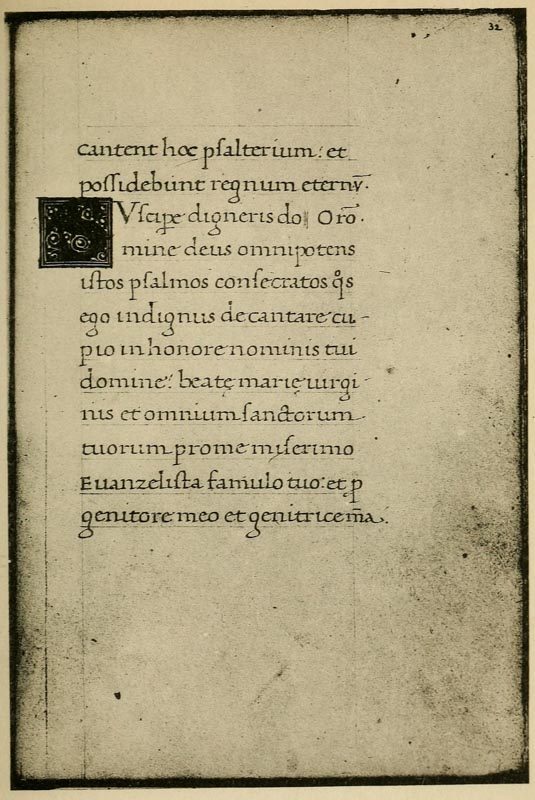 32
cantent hoc psalterium: et
possidebunt regnum eternū.
Vscipe digneris do Orō.
mine deus omnipotens
istos psalmos consecratos qͦs
ego indignus decantare cu-
pio in honore nominis tui
domine: beatę marię uirgi
nis et omnium sanctorum
tuorum pro me miserimo
Euanzelista famulo tuo: et ꝑ
genitore meo et genitrice m̄a.